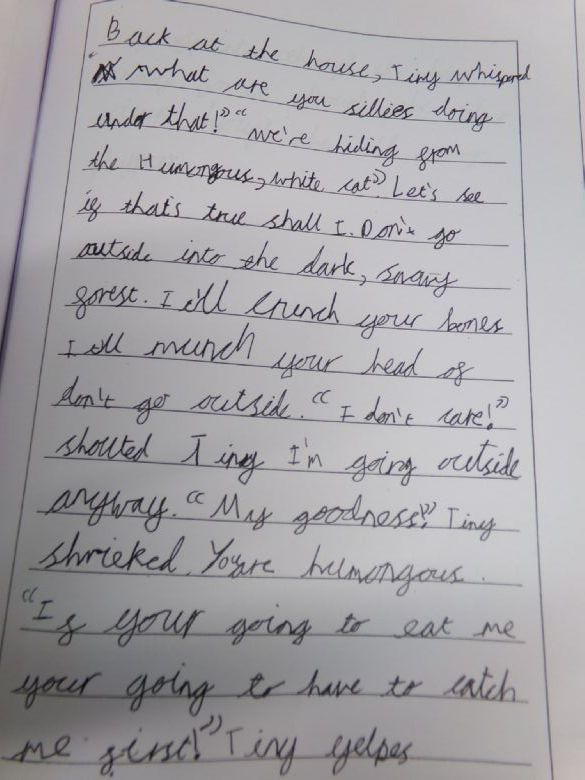 Back at the house, Tiny whispered
"what are you sillies doing
under that!" "we're hiding from
the Humongous, white cat". Let's see
if that's true shall I. Don't go
outside into the dark,
forest. I ill crunch your bones
I ill munch your head of
don't go outside. "I don't care!"
shouted Tiny I'm going outside
anyway. "My goodness". Tiny
shrieked. You're humongous.
"If your going to eat me
your going to have to catch
me first!" Tiny yelpes